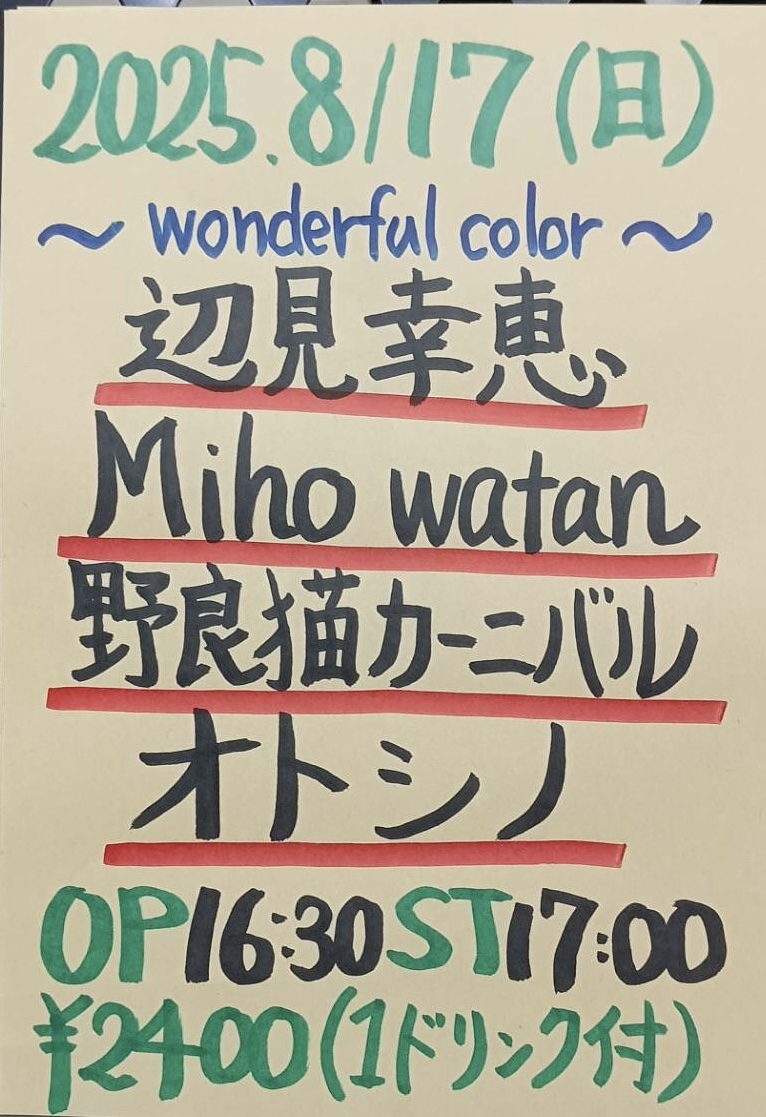 2025.8/17(日)
〜 wonderful color 〜
辺見幸恵
Miho watan
野良猫カーニバル
オトシノ
OP16:30 ST17:00
¥2400(1ドリンク付)